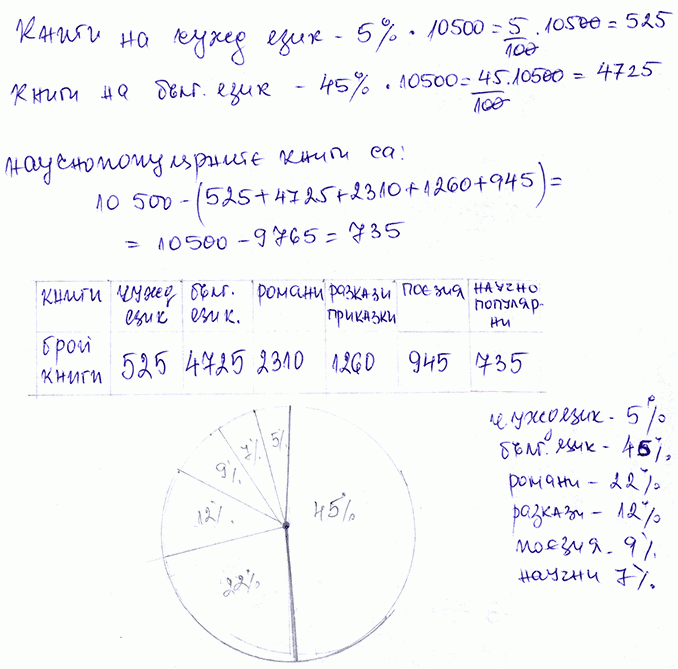 Книги на чужд език - 5% · 10500 = 5/100 · 10500 = 525
Книги на бълг. език - 45% · 10500 = 45/100 · 10500 = 4725
Научнопопулярните книги са:
10 500 - (525+4725+2310+1260+945) =
= 10500 - 9765 = 735
книги чужд език бълг. език. романи разкази приказки поезия научно популяр- ни
брой книги 525 4725 2310 1260 945 735
5%
7%
9%
12%
22%
45%
чужд език - 5%
бълг. език - 45%
романи - 22%
разкази - 12%
поезия - 9%
научни 7%.